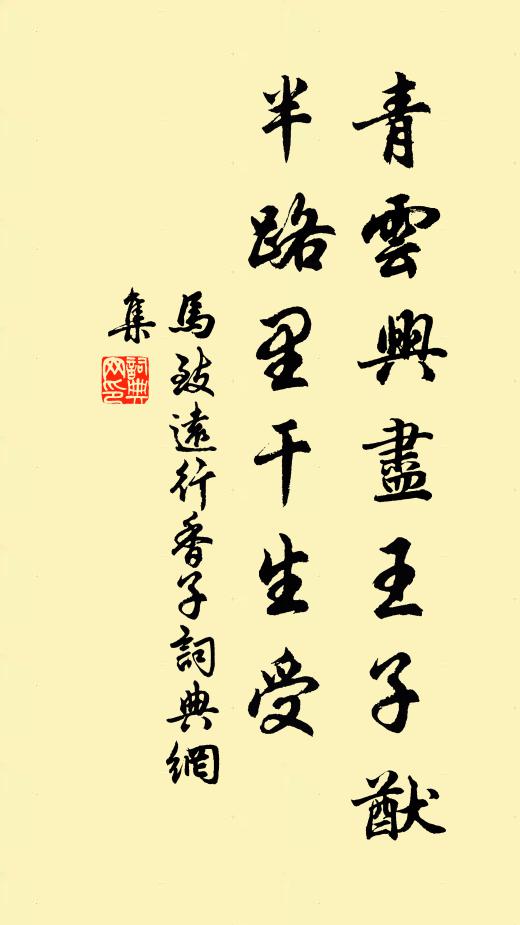 青雲興盡王子猷
半路里干生受
馬致遠行香子詞典網
集
詞典網印